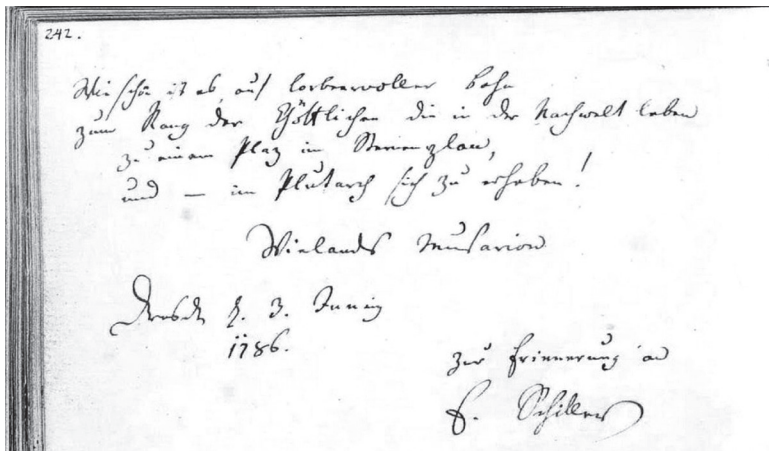 242.
Wie schön ist es, auf lorbeervoller bahn
zum Rang der Göttlichen die in der Nachwelt leben
zu einem Plaz im Sternenplan,
und – im Plutarch sich zu erheben!
Wielands Musarion
Dresden d. 3. Juny
1786.
Zur Erinnerung an
F. Schiller